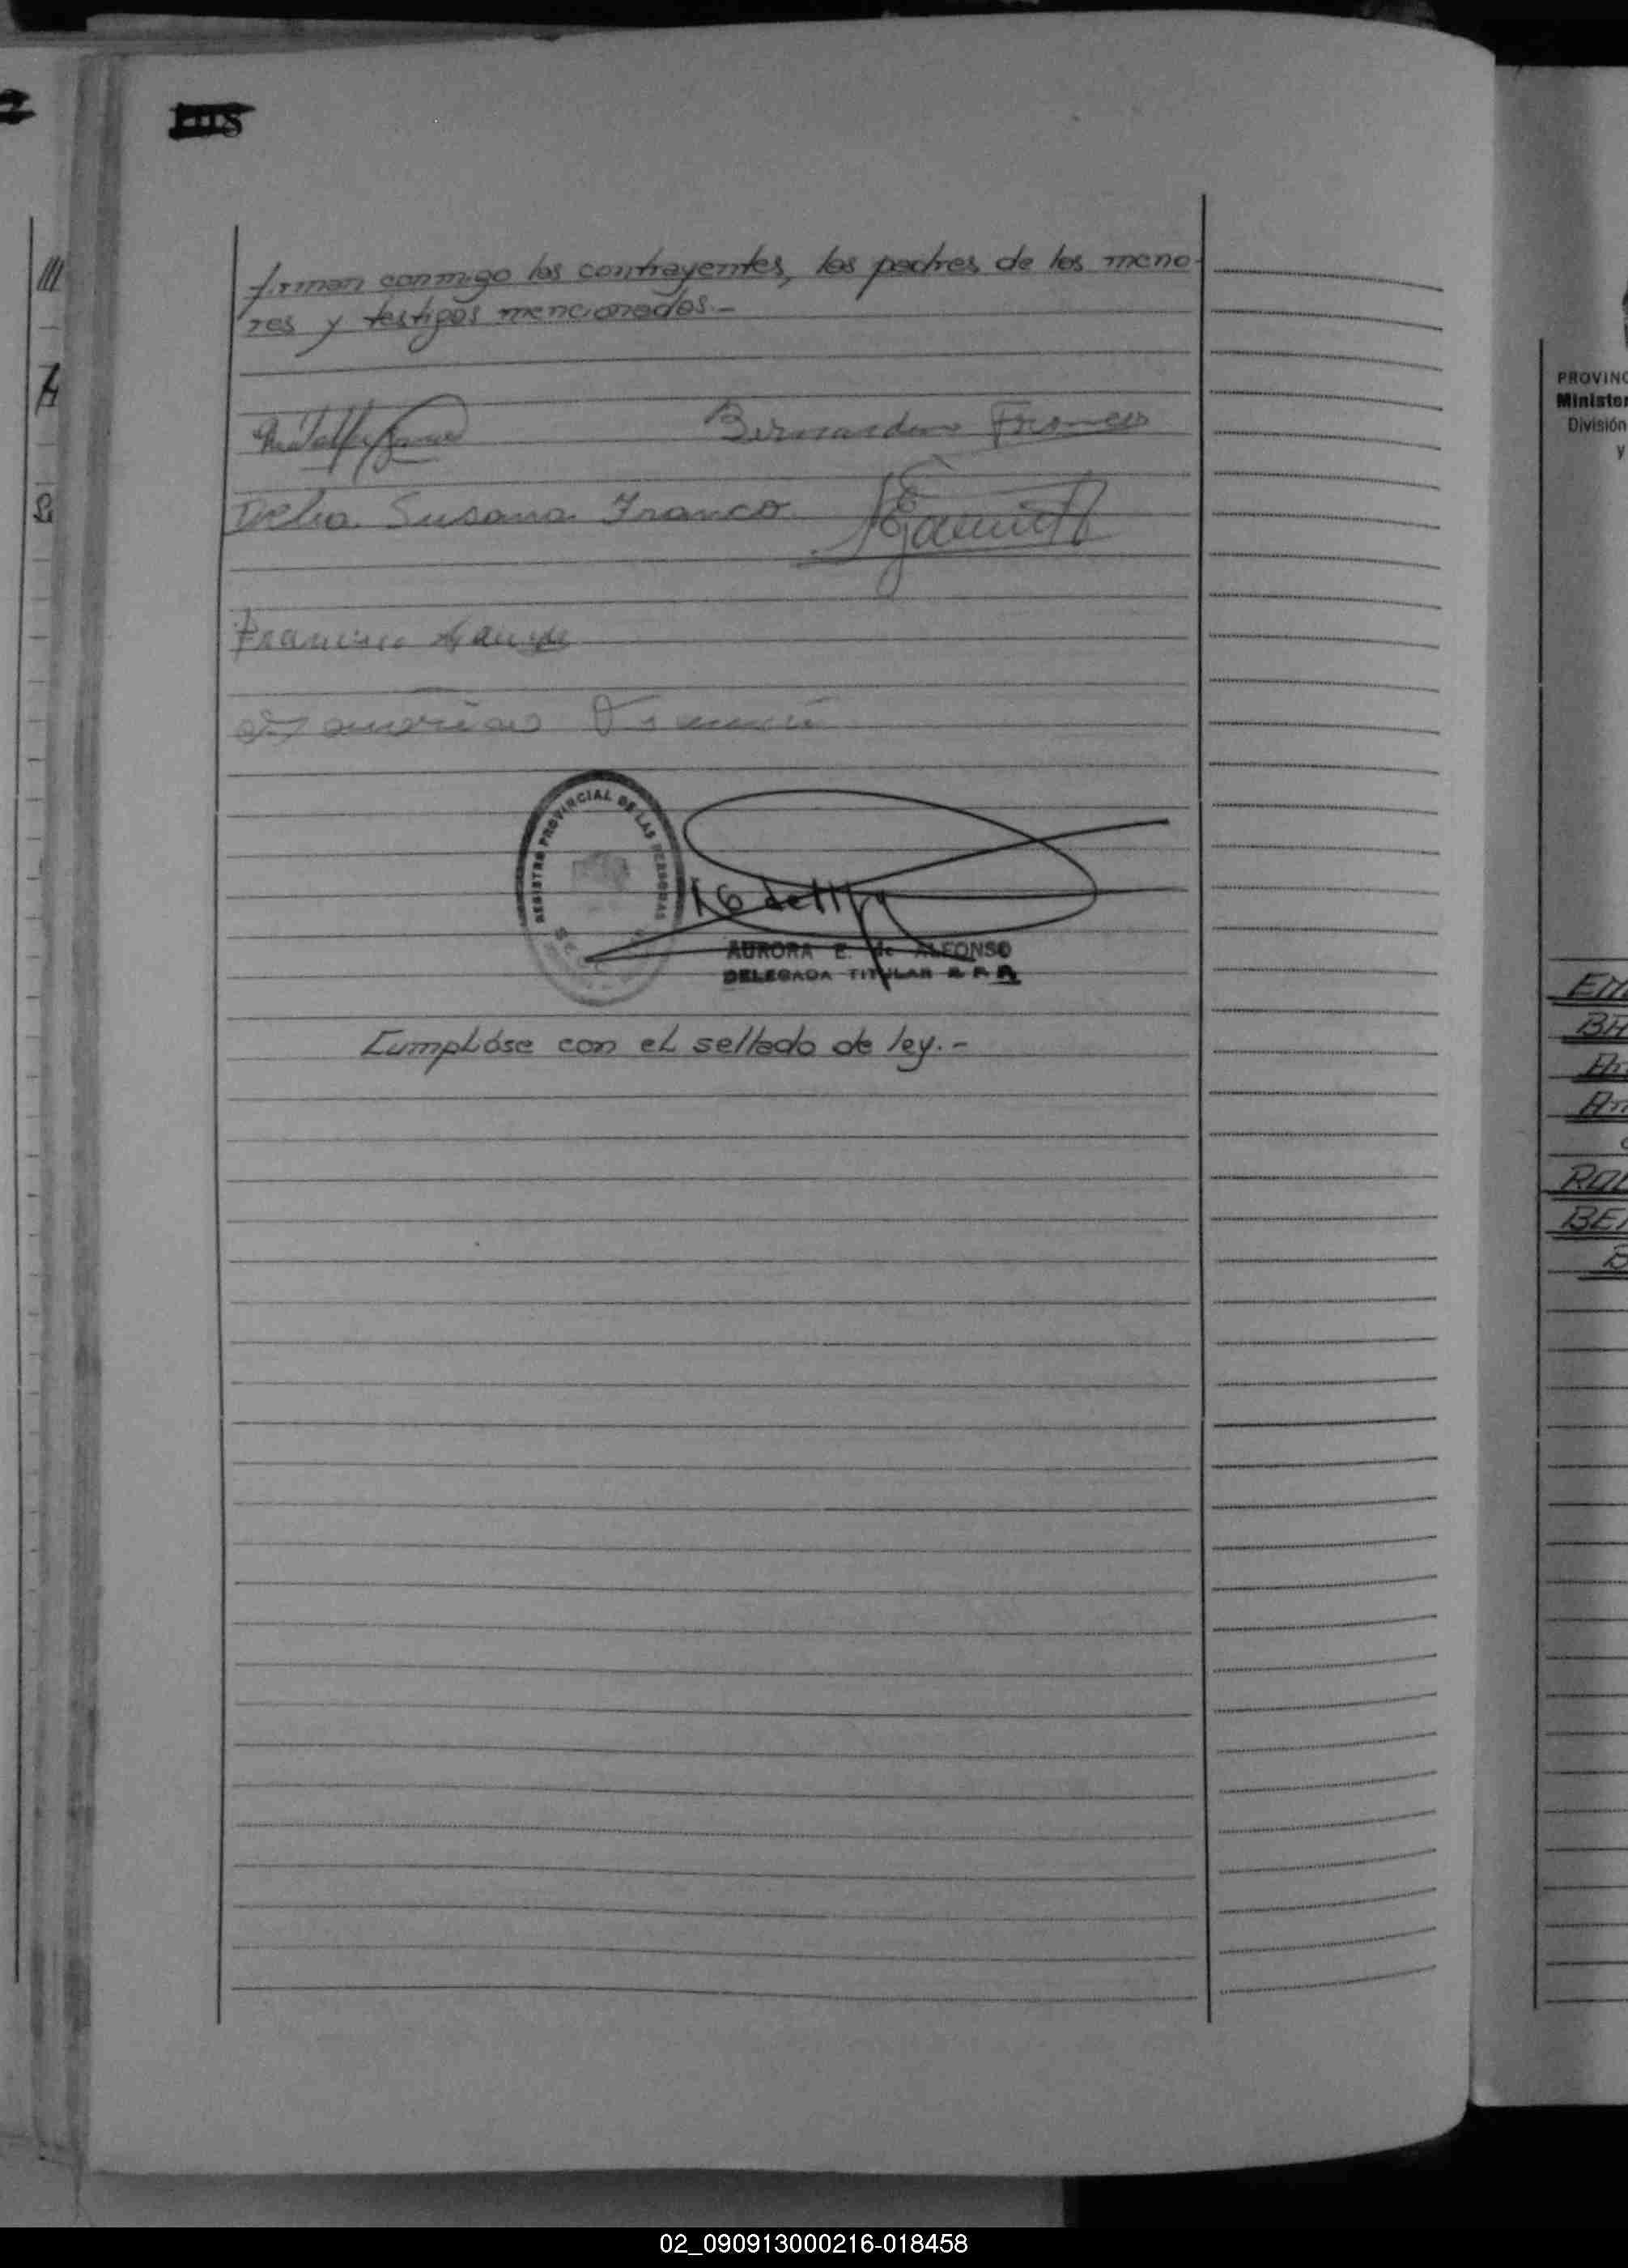 firman conmigo los contrayentes, los padres de los meno-
res y testigos mencionados.-
Bernardino Franco
Delia Susana Franco
Francisco
REGISTRO PROVINCIAL DE LAS PERSONAS
AURORA E. de ALFONSO
DELEGADA TITULAR R. P. P.
Cumplóse con el sellado de ley.-
PROVINC
Minister
División
y
EM
BA
An
An
ROL
BE
B
02_090913000216-018458